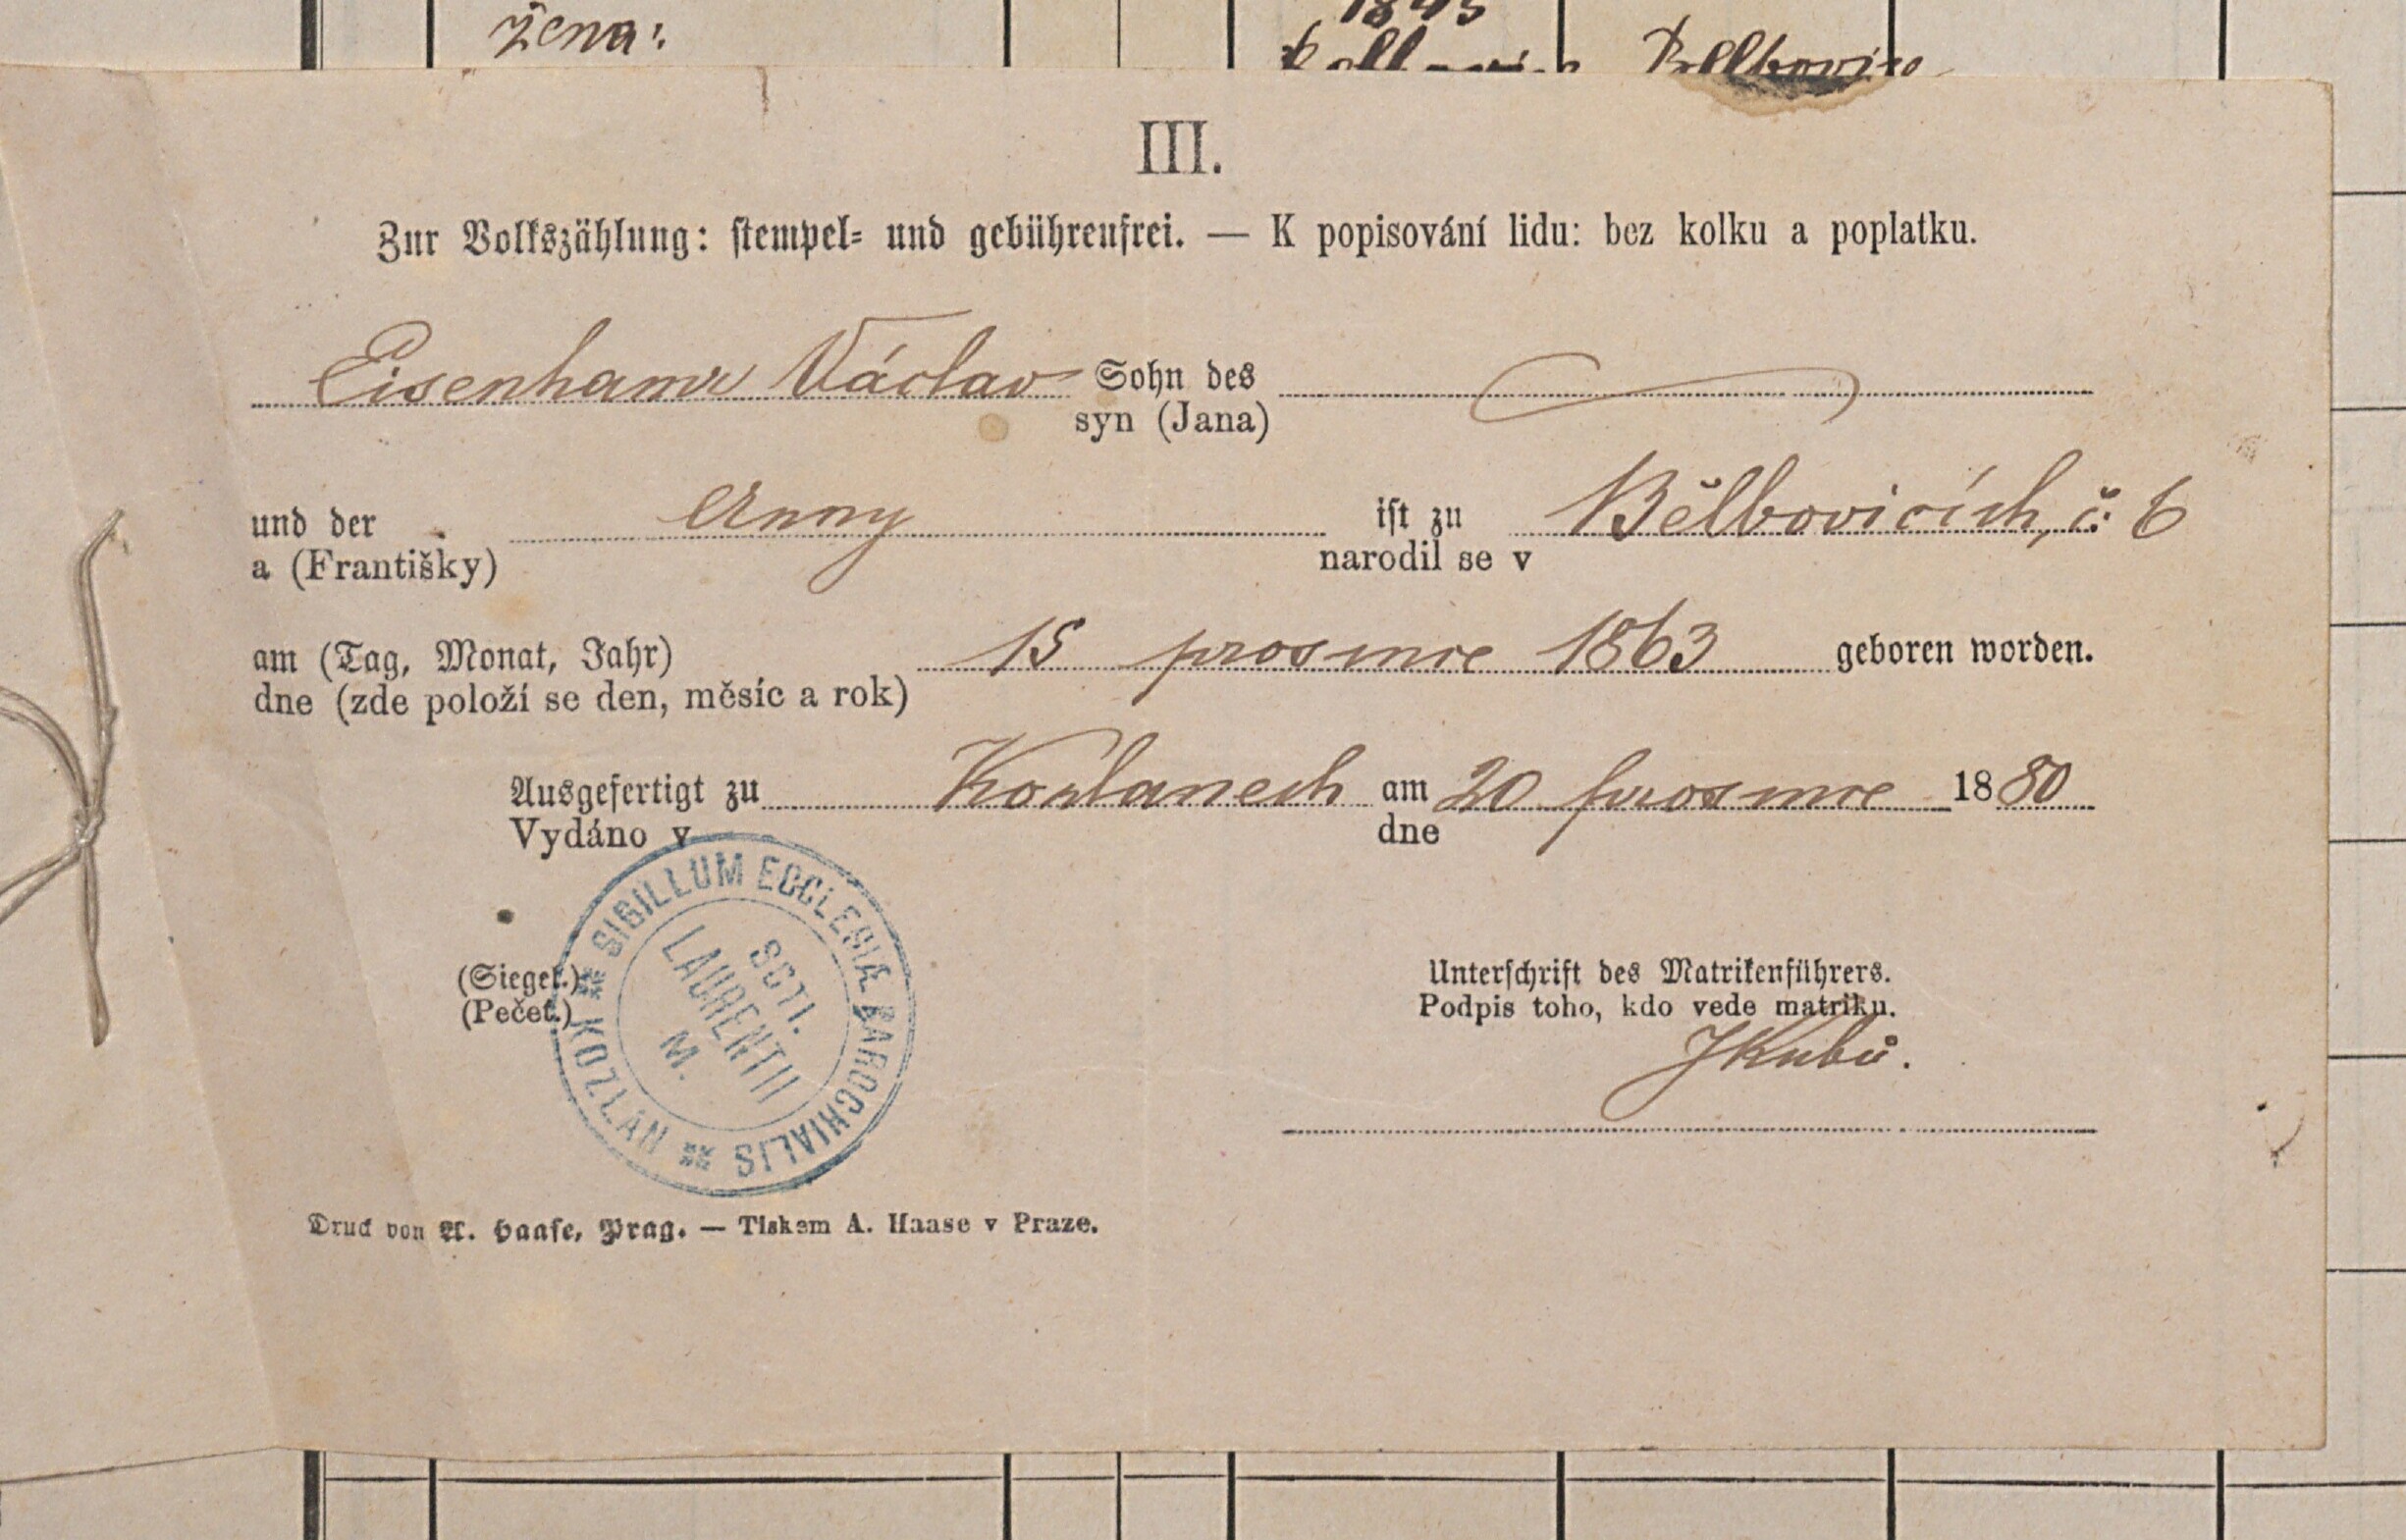 žena:
1845
III.
Zur Volkszählung: stempel- und gebührenfrei. — K popisování lidu: bez kolku a poplatku.
Eisenhamr Václav Sohn des
syn (Jana)
und der Anny ist zu Bělbovicích, č. 6
a (Františky) narodil se v
am (Tag, Monat, Jahr) 15 prosince 1863 geboren worden.
dne (zde položí se den, měsíc a rok)
Ausgefertigt zu Kozlanech am 20 prosince 1880
Vydáno v dne
SIGILLUM ECCLESIÆ PAROCHIALIS KOZLAN
SCTI.
LAURENTII
M.
(Siegel.)
(Pečeť.)
Unterschrift des Matrikenführers.
Podpis toho, kdo vede matriku.
JKubů.
Druck von A. Haase, Prag. — Tiskem A. Haase v Praze.